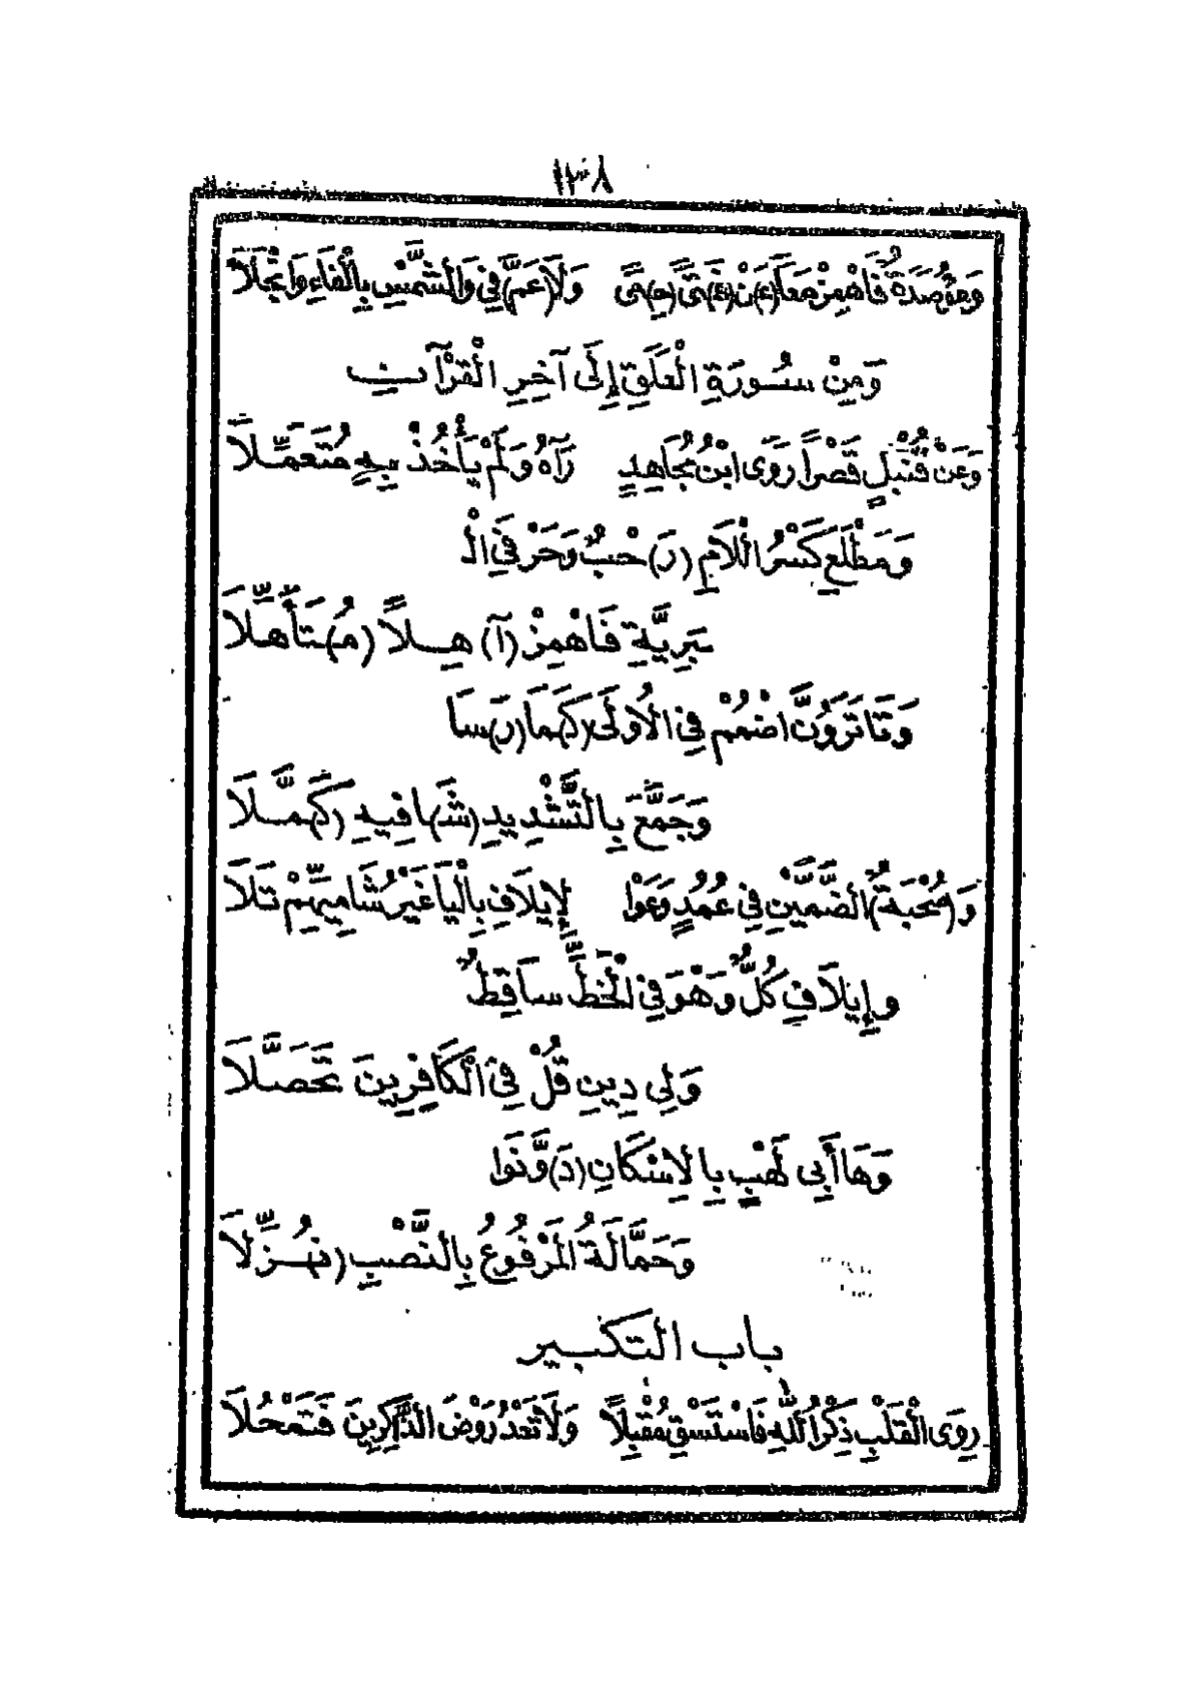 ١٣٨
وَمُؤْصَدَةٌ فَاهْمِزْ مَعاً (عَ)نْ (فَ)تًى (حِ)مًى وَلَا (عَمَّ) فِي وَالشَّمْسِ بِالْفَاءِ وَانْجَلَا
وَمِنْ سُورَةِ الْعَلَقِ إِلَى آخِرِ الْقُرْآنِ
وَعَنْ قُنْبُلٍ قَصْراً رَوَى ابْنُ مُجَاهِدٍ رَآهُ وَلَمْ يَأْخُذْ بِهِ مُتَعَمِّلَا
وَمَطْلَعِ كَسْرُ اللَّامِ (رَ)حْبٌ وَحَرْفَيِ الْ
بَرِيَّةِ فَاهْمِزْ (آ)هِلاً (مُ)تَأَهِّلَا
وَتَا تَرَوُنَّ اضْمُمْ فِي الْأُولَى (كَ)مَا (رَ)سَا
وَجَمَّعَ بِالتَّشْدِيدِ (شَ)افِيهِ (كَ)مَّلَا
وَ(صُحْبَةٌ) الضَّمَّيْنِ فِي عُمُدٍ وَعَوْا لِإِيلَافِ بِالْيَا غَيْرُ شَامِيِّهِمْ تَلَا
وَإِيلَافِ كُلٌّ وَهْوَ فِي الْخَطِّ سَاقِطٌ
وَلِي دِينِ قُلْ فِي الْكَافِرِينَ تَحَصَّلَا
وَهَا أَبِي لَهْبٍ بِالْإِسْكَانِ (دَ)وَّنُوا
وَحَمَّالَةُ الْمَرْفُوعُ بِالنَّصْبِ (نُ)زِّلَا
باب التكبير
رِوَى الْقَلْبِ ذِكْرُ اللَّهِ فَاسْتَسْقِ مُقْبِلاً وَلَا تَعْدُ رَوْضَ الذَّاكِرِينَ فَتَمْحُلَا